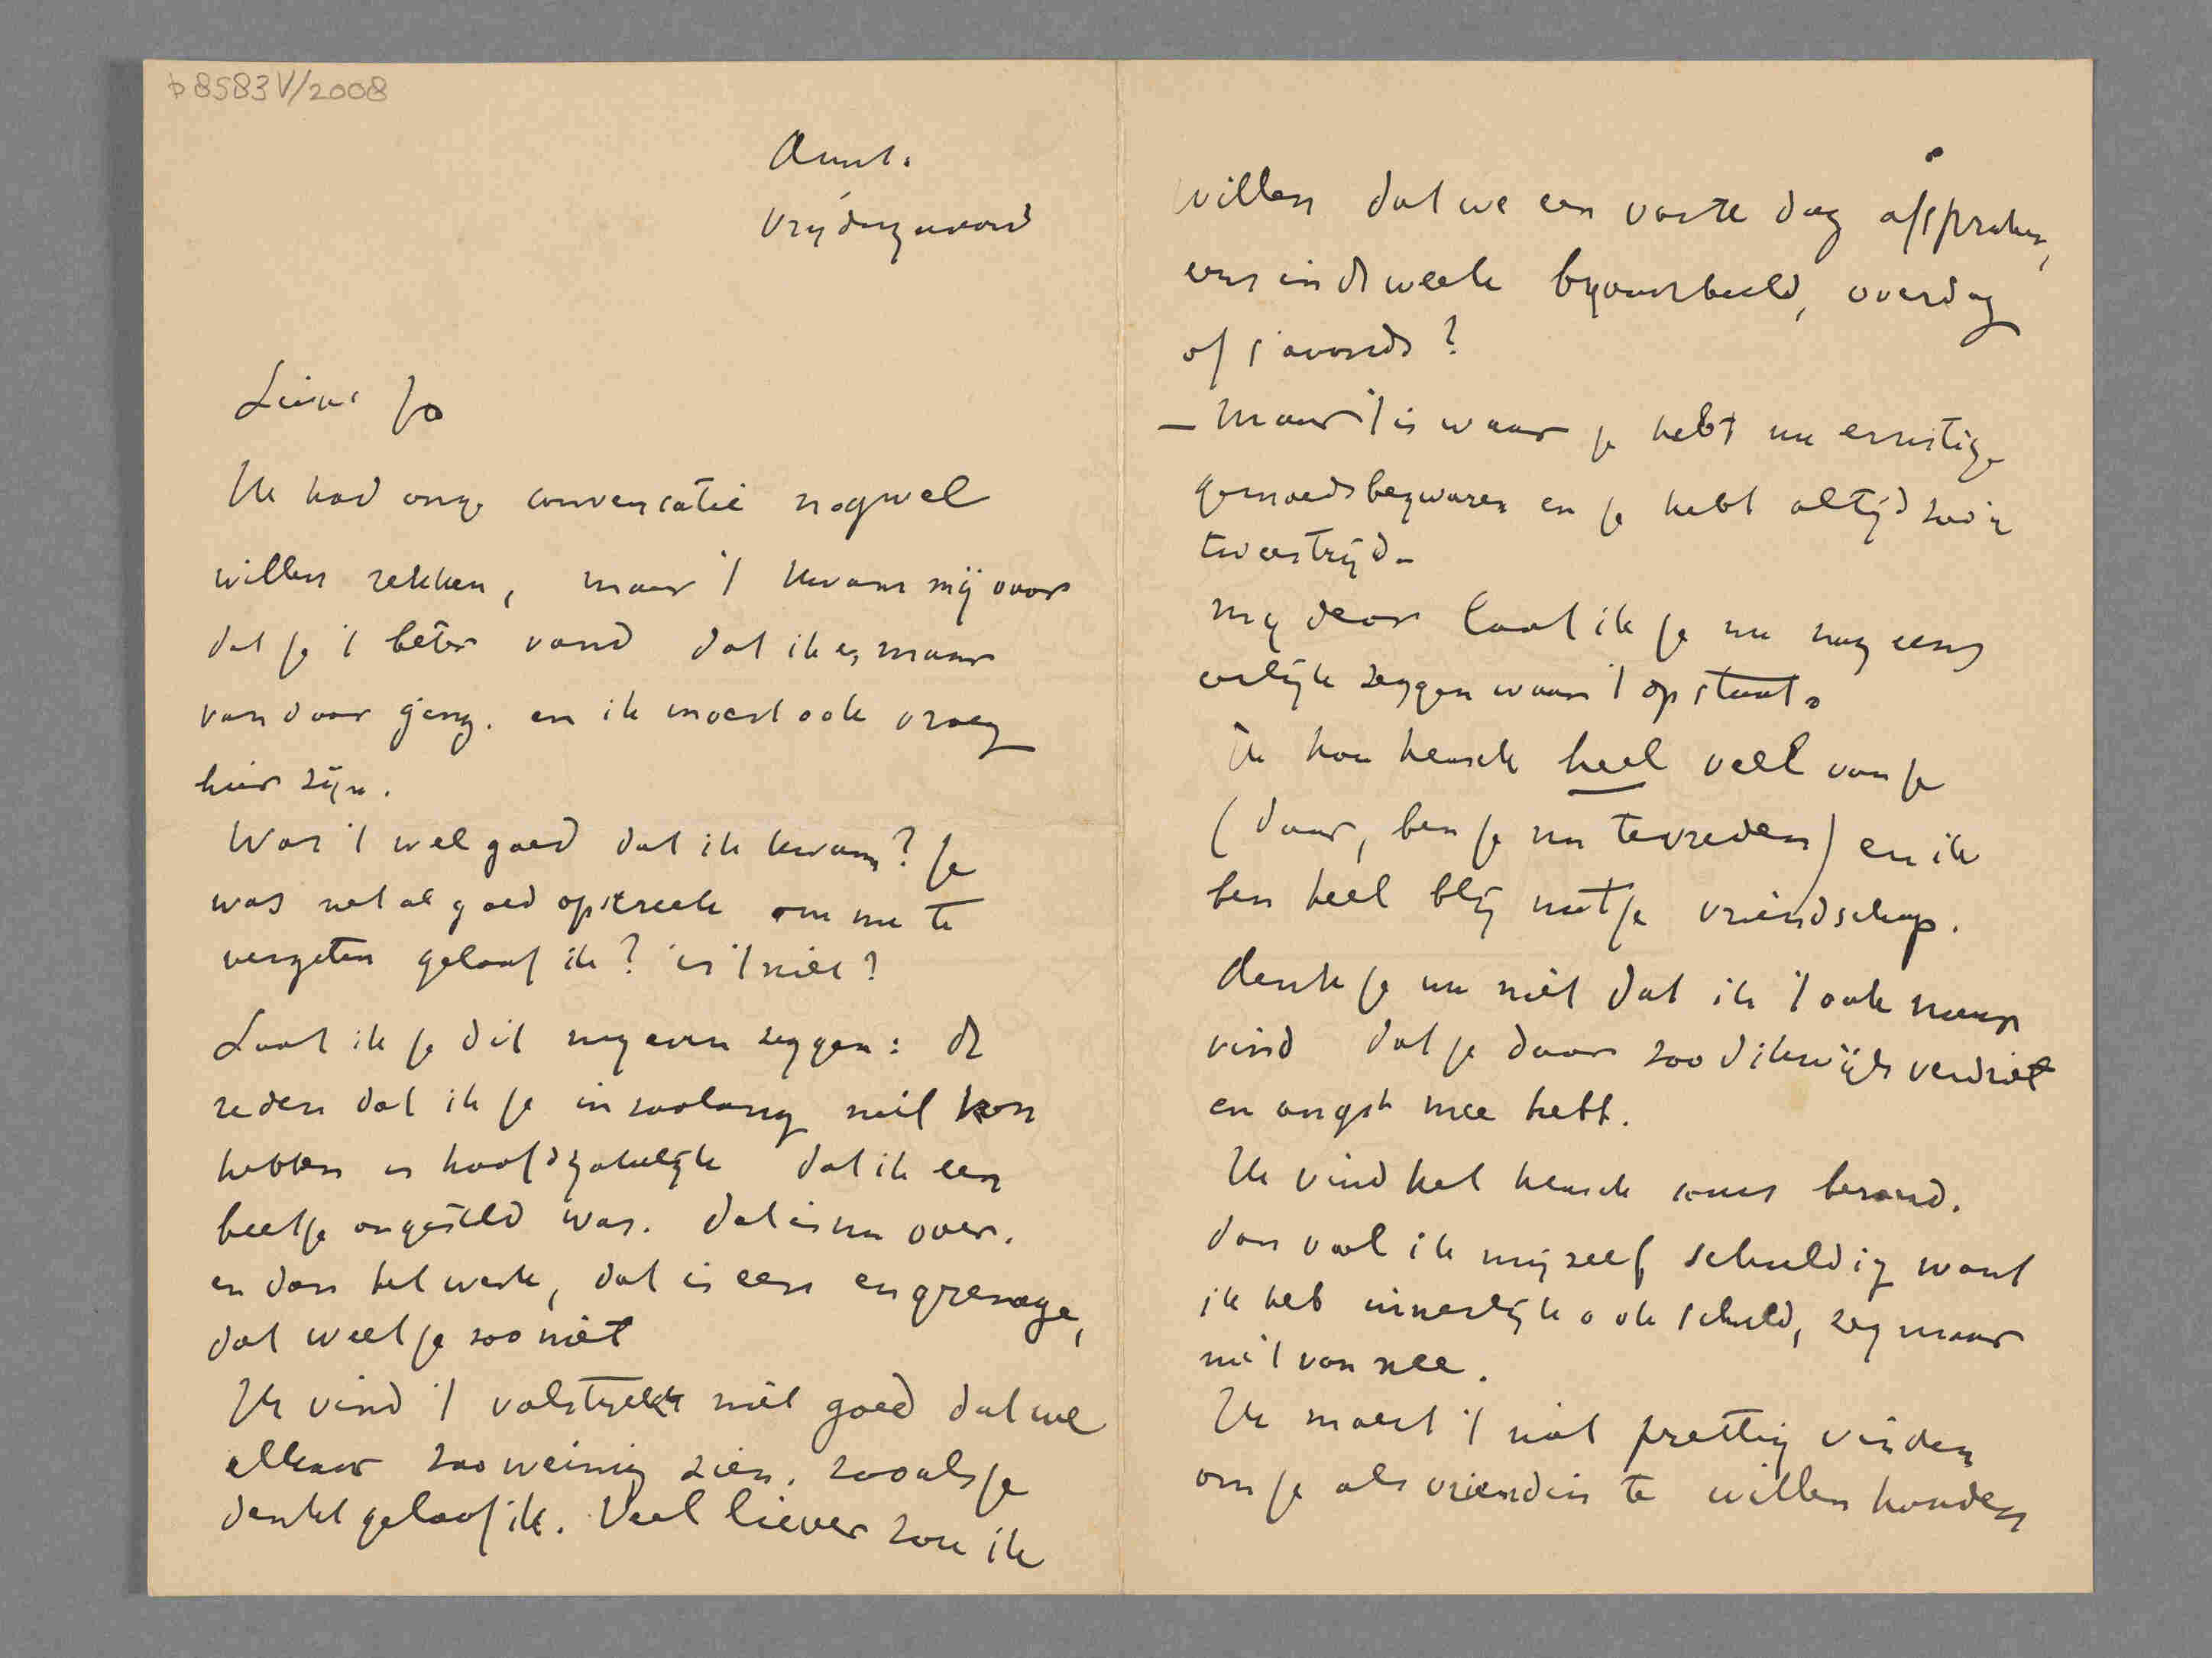 b8583 V/2008
Amst.
Vrijdagavond
Lieve Jo
Ik had onze conversatie nog wel
willen rekken, maar 't kwam mij voor
dat je 't beter vond dat ik er maar
van door ging. en ik moest ook vroeg
hier zijn.
Was 't wel goed dat ik kwam? Je
was net al goed op streek om me te
vergeten geloof ik? is 't niet?
Laat ik je dit nog even zeggen: de
reden dat ik je in zoolang niet kon
hebben is hoofdzakelijk dat ik een
beetje ongesteld was. dat is nu over.
en dan het werk, dat is een engrenage,
dat weet je zoo niet
Ik vind 't volstrekt niet goed dat we
elkaar zoo weinig zien. zooals je
denkt geloof ik. Veel liever zou ik
willen dat we een vaste dag afspraken,
eens in de week bijvoorbeeld, overdag
of s'avonds?
– Maar 't is waar je hebt nu ernstige
gemoedsbezwaren en je hebt altijd zoo'n
tweestrijd –
my dear laat ik je nu nog eens
eerlijk zeggen waar 't op staat.
Ik hou heusch heel veel van je
(daar, ben je nu tevreden) en ik
ben heel blij met je vriendschap.
denk je nu niet dat ik 't ook naar
vind dat je daar zoo dikwijls verdriet
en angst mee hebt.
Ik vind het heusch soms beroerd.
dan voel ik mijzelf schuldig want
ik heb innerlijk ook schuld, zeg maar
niet van nee.
Ik moest 't niet prettig vinden
om je als vriendin te willen houden